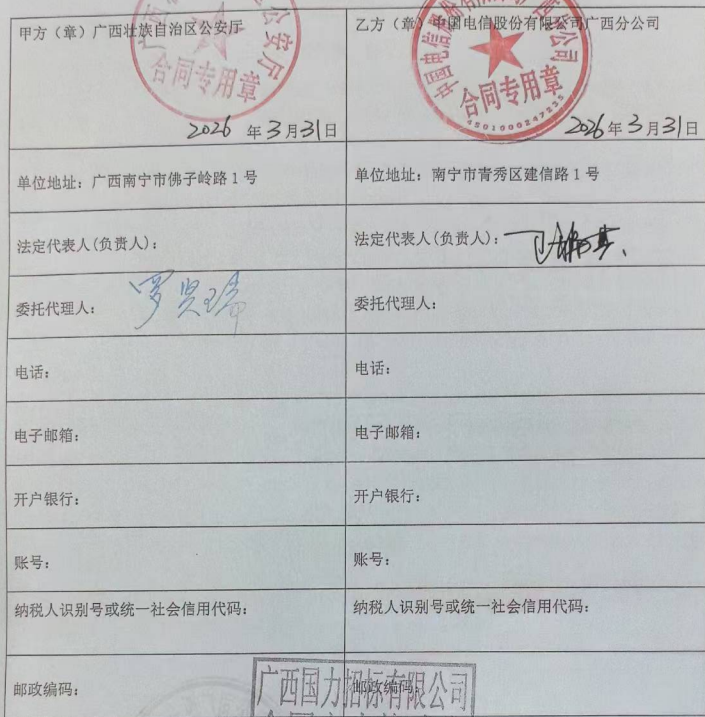 甲方（章）广西壮族自治区公安厅
合同专用章
2026 年 3 月 31 日
乙方（章）中国电信股份有限公司广西分公司
合同专用章
4501000247235
2026 年 3 月 31 日
单位地址：广西南宁市佛子岭路 1 号
单位地址：南宁市青秀区建信路 1 号
法定代表人(负责人)：
法定代表人(负责人)：
委托代理人：
罗贤瑞
委托代理人：
电话：
电话：
电子邮箱：
电子邮箱：
开户银行：
开户银行：
账号：
账号：
纳税人识别号或统一社会信用代码：
纳税人识别号或统一社会信用代码：
邮政编码：
邮政编码：
广西国力招标有限公司